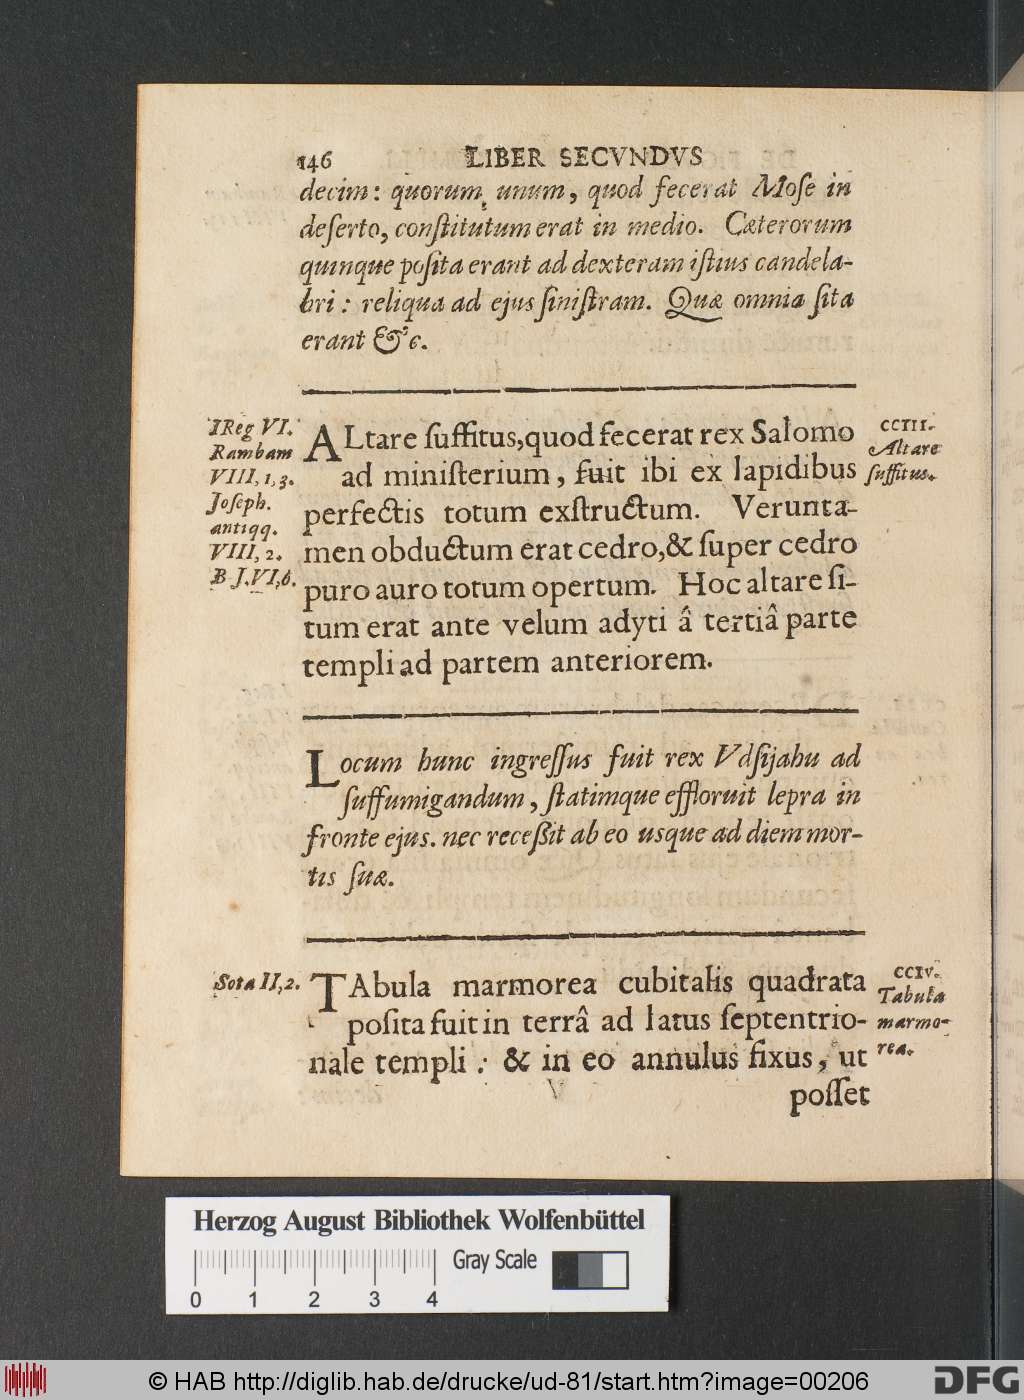 146 LIBER SECVNDVS
decim: quorum unum, quod fecerat Mose in
deſerto, conſtitutum erat in medio. Cæterorum
quinque poſita erant ad dexteram iſtius candela-
bri: reliqua ad ejus ſiniſtram. Quæ omnia ſita
erant &c.
I Reg VI.
Rambam
VIII, 1, 3.
Joſeph.
antiqq.
VIII, 2.
B J. VI, 6.
ALtare ſuffitus, quod fecerat rex Salomo
ad miniſterium, fuit ibi ex lapidibus
perfectis totum exſtructum. Verunta-
men obductum erat cedro, & ſuper cedro
puro auro totum opertum. Hoc altare ſi-
tum erat ante velum adyti â tertiâ parte
templi ad partem anteriorem.
CCIII.
Altare
ſuffitus.
Locum hunc ingreſſus fuit rex Vdſijahu ad
ſuffumigandum, ſtatimque effloruit lepra in
fronte ejus. nec receßit ab eo usque ad diem mor-
tis ſuæ.
Sota II, 2.
TAbula marmorea cubitalis quadrata
poſita fuit in terrâ ad latus ſeptentrio-
nale templi: & in eo annulus fixus, ut
poſſet
CCIV.
Tabula
marmo-
rea.
Herzog August Bibliothek Wolfenbüttel
Gray Scale
0 1 2 3 4
© HAB http://diglib.hab.de/drucke/ud-81/start.htm?image=00206
DFG